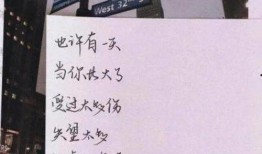 West 32
也许有一天
当你长大了
受过太多伤
失望太多